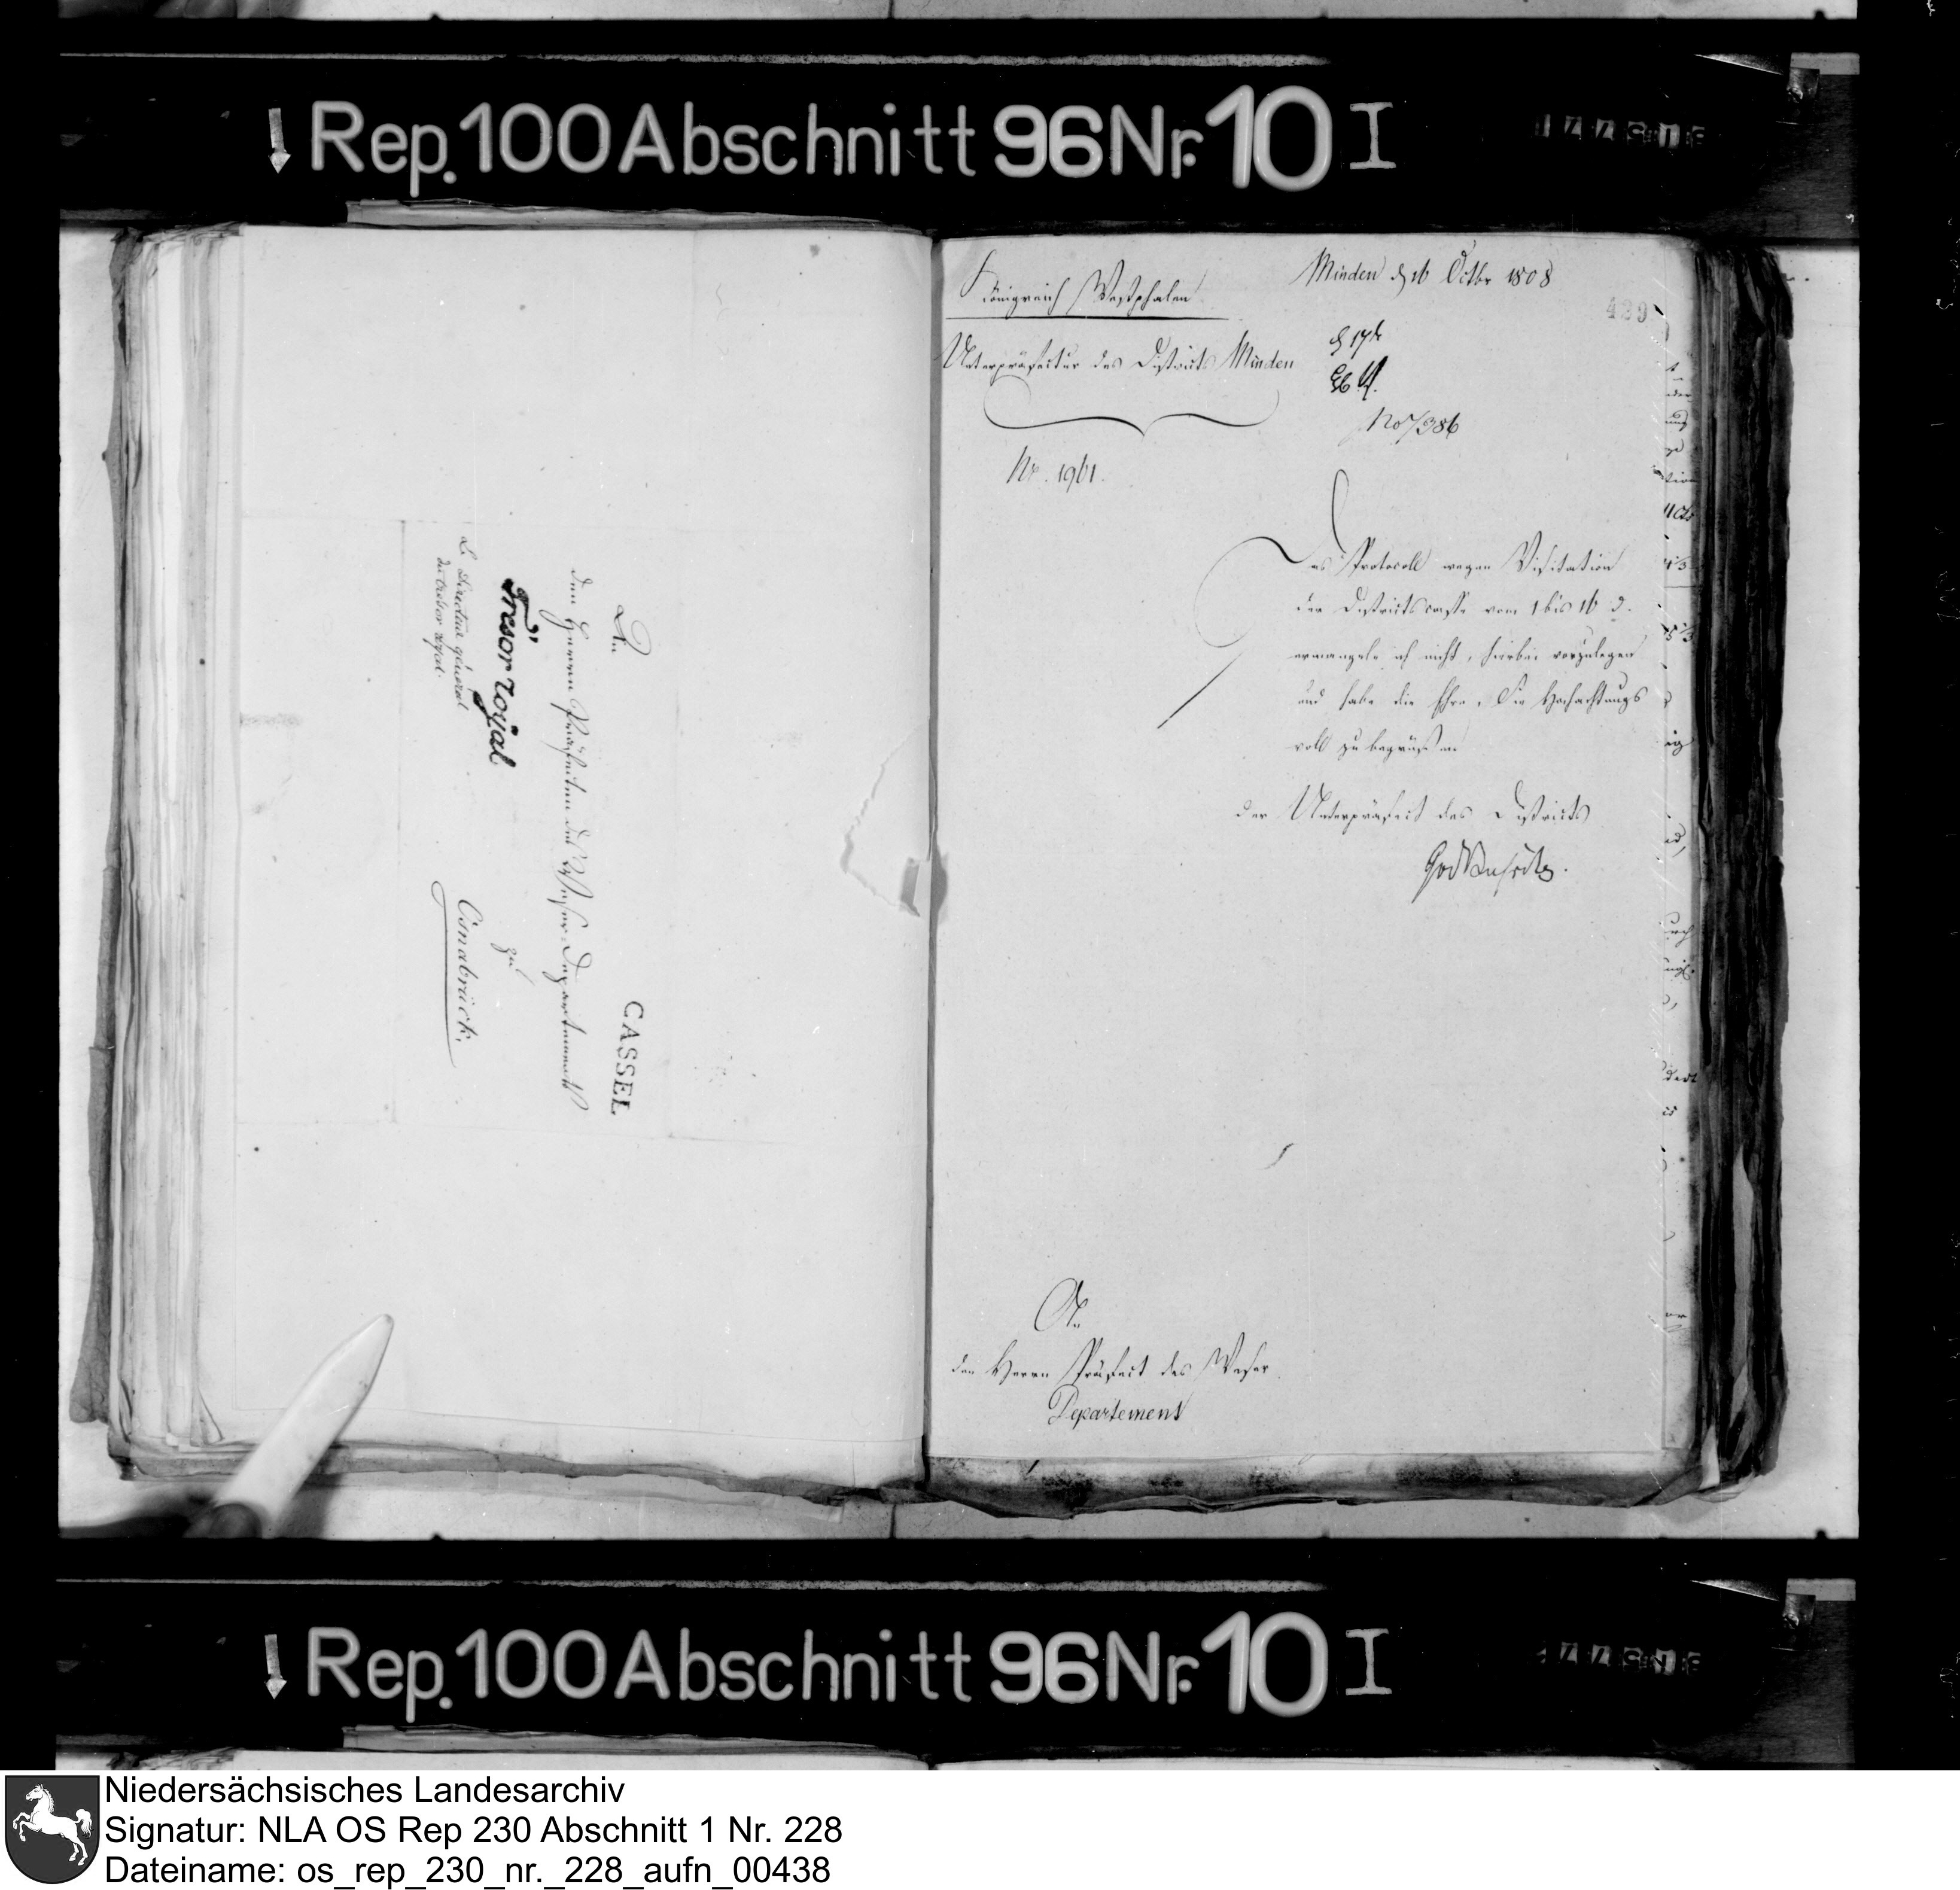 Rep. 100 Abschnitt 96 Nr. 10 I
An
den Herrn Präfecten des Weser Departements
Trésor royal
zu
Osnabrück.
Le Directeur général
du trésor royal.
CASSEL
Königreich Westphalen
Unterpräfectur des Districts Minden
Nr. 1961.
Minden d 16 Octbr 1808
429
d 17t
No 7386
Das Protocoll wegen Visitation
der Districtscasse vom 1 bis 16 d.
ermangele ich nicht, hierbei vorzulegen
und habe die Ehre, Sie Hochachtungs
voll zu begrüßen
der Unterpräfect des Districts
An
den Herrn Präfect des Weser
Departement
Rep. 100 Abschnitt 96 Nr. 10 I
Niedersächsisches Landesarchiv
Signatur: NLA OS Rep 230 Abschnitt 1 Nr. 228
Dateiname: os_rep_230_nr._228_aufn_00438